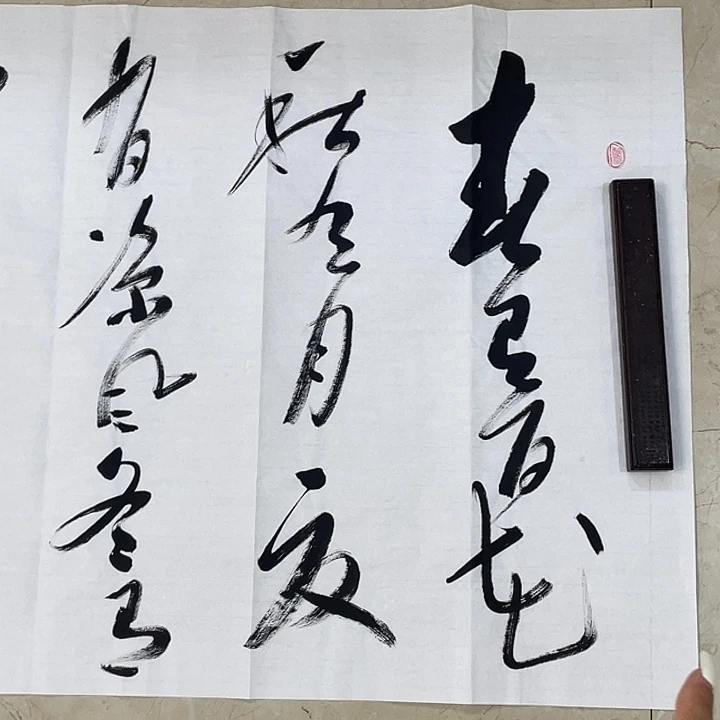 春有百花
秋有月夏
有凉风冬有